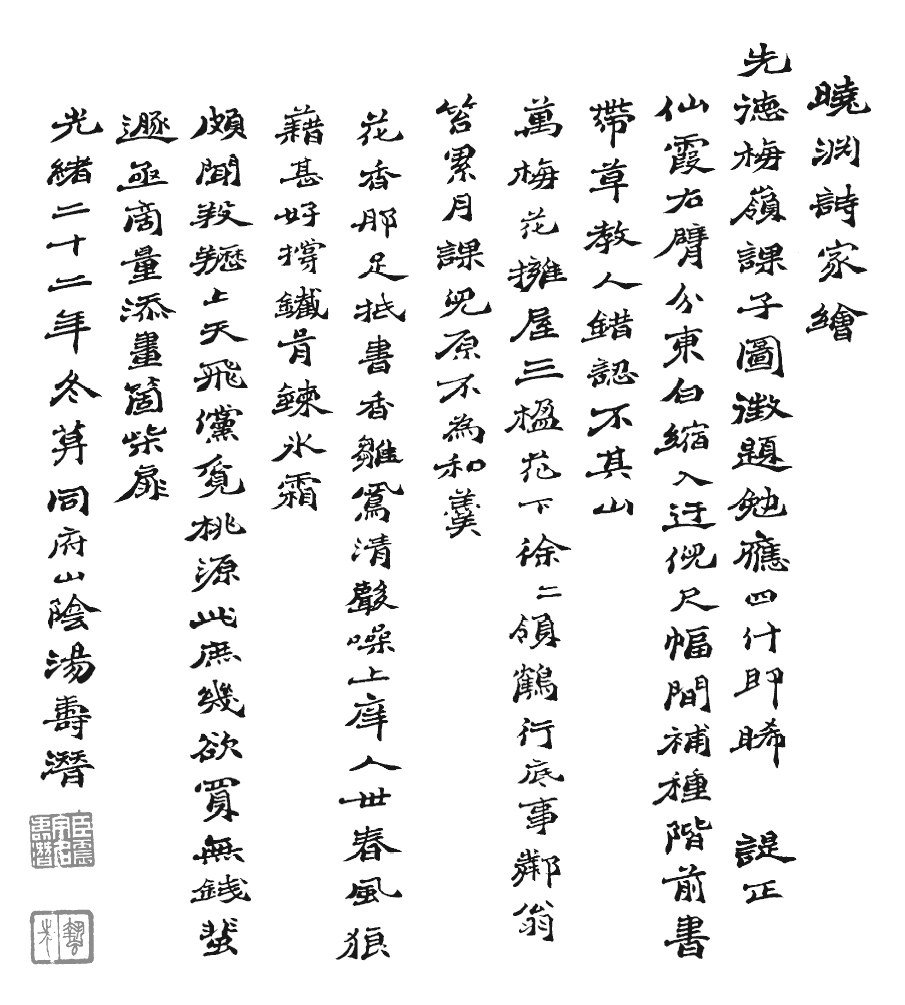 曉渊詩家繪
先德梅嶺課子圖徵題勉應四什即晞 諟正
仙霞右臂分東白縮入迂倪尺幅間補種階前書
帶草教人錯認不其山
萬梅花擁屋三楹花下徐二領鶴行底事鄰翁
笞累月課兒原不為和羹
花香那足抵書香雛鳳清聲噪上庠人世春風狼
藉甚好撐鐵骨鍊氷霜
頗聞羖䍽上天飛儻覓桃源此庶幾欲買無錢蜚
遯亟商量添畫箇柴扉
光緒二十二年冬同府山陰湯壽潛